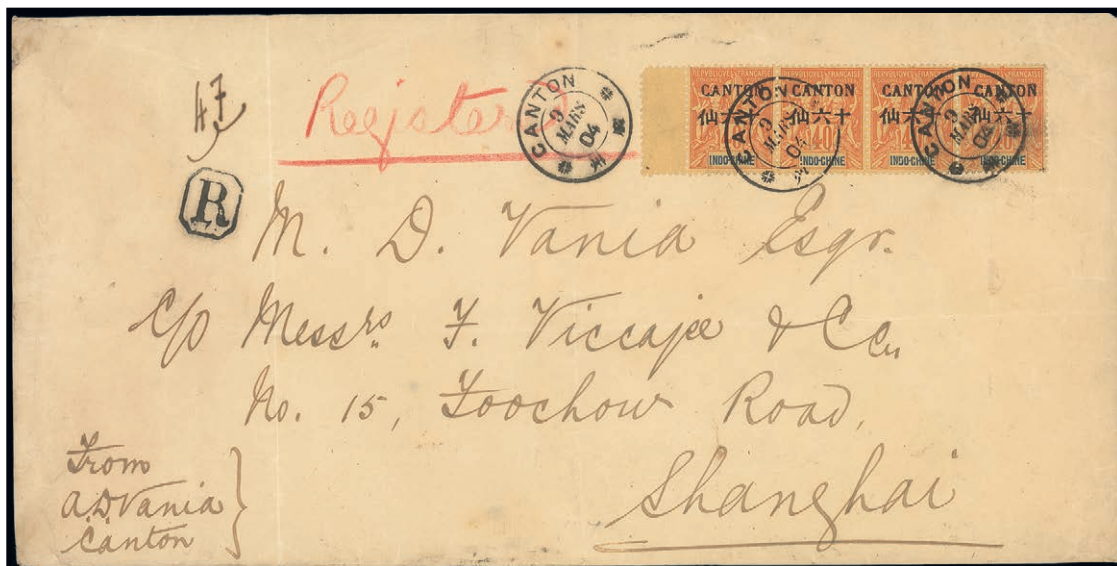 Registered
R
CANTON
9
MARS
04
REPUBLIQUE FRANCAISE
CANTON
仙六十
40
INDO-CHINE
CANTON
仙六十
40
INDO-CHINE
CANTON
仙六十
40
INDO-CHINE
CANTON
仙六十
INDO-CHINE
CANTON
9
MARS
04
CANTON
9
MARS
04
M. D. Vania Esqr.
C/o Messrs. F. Viccajee & Co.
No. 15, Foochow Road,
Shanghai
From
A.D Vania
Canton